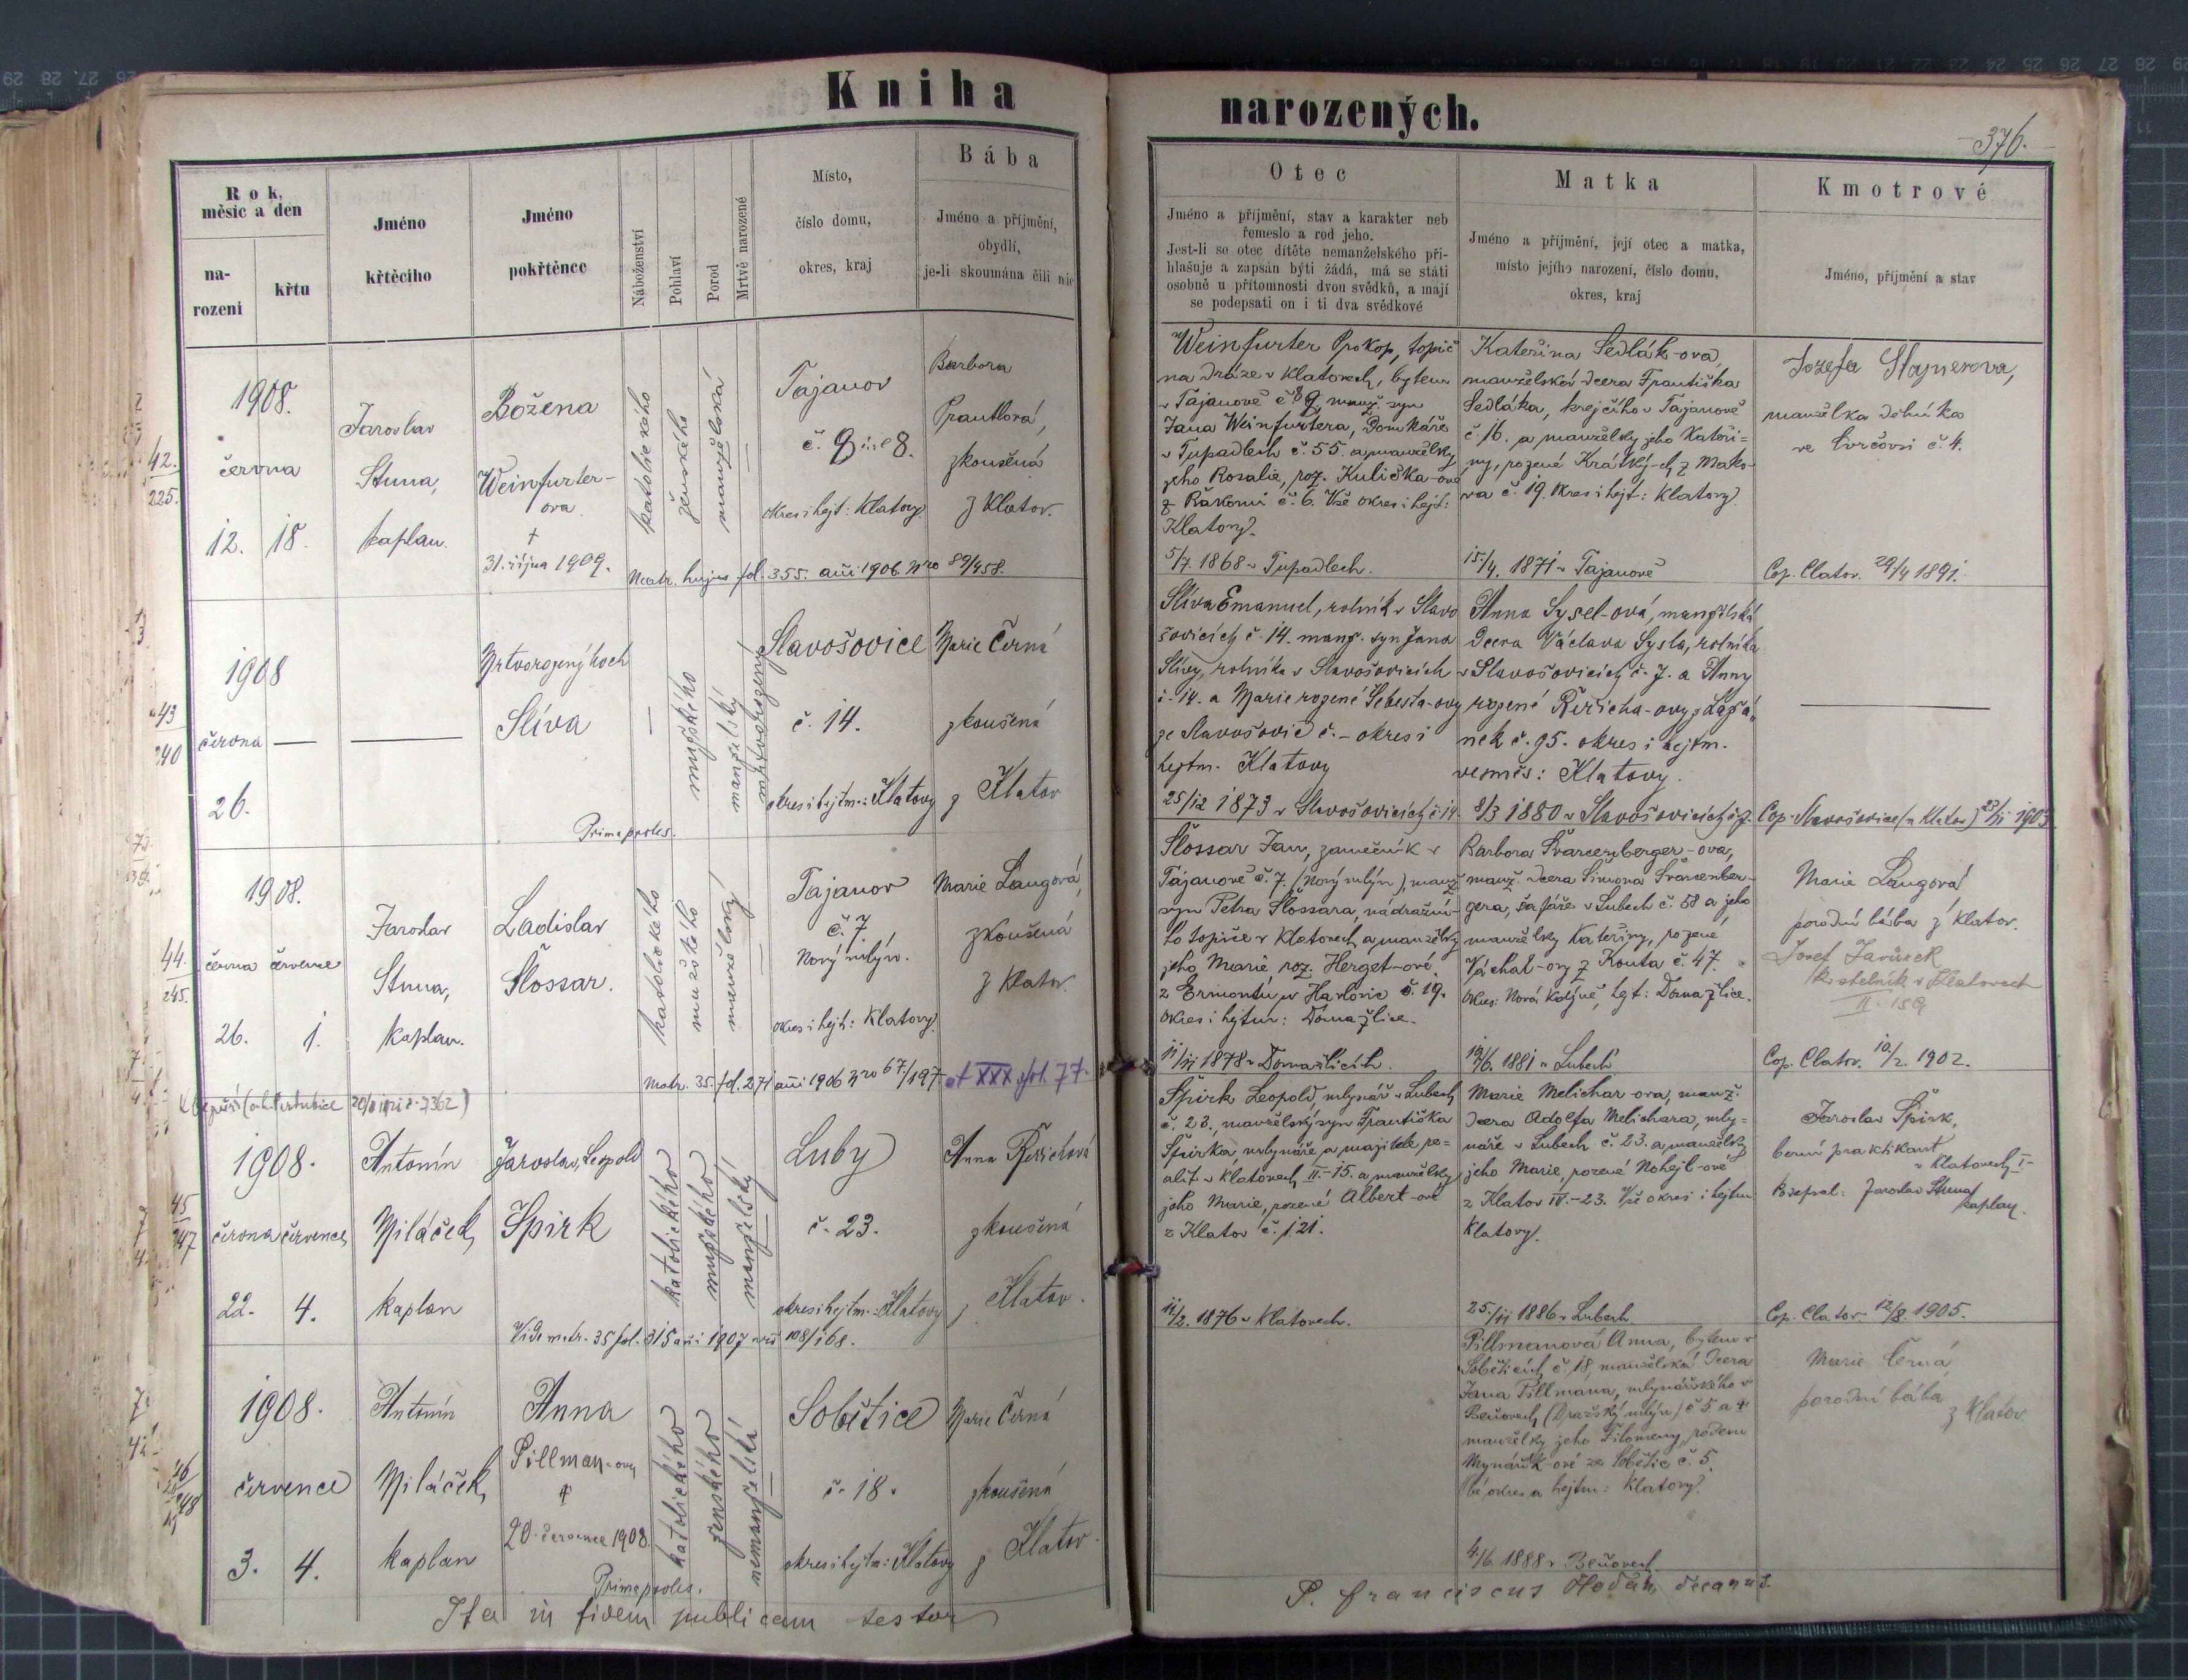 Kniha narozených.
376.
Rok, měsíc a den
na-
rození
křtu
Jméno
křtěcího
Jméno
pokřtěnce
Náboženství
Pohlaví
Porod
Mrtvě narozené
Místo,
číslo domu,
okres, kraj
Bába
Jméno a příjmění,
obydlí,
je-li skoumána čili nic
Otec
Jméno a příjmění, stav a karakter neb
řemeslo a rod jeho.
Jest-li se otec dítěte nemanželského při-
hlašuje a zapsán býti žádá, má se státi
osobně u přítomnosti dvou svědků, a mají
se podepsati on i ti dva svědkové
Matka
Jméno a příjmění, její otec a matka,
místo jejího narození, číslo domu,
okres, kraj
Kmotrové
Jméno, příjmění a stav
42.
225.
1908.
června
12. 18.
Jaroslav
Stuna,
kaplan.
Božena
Weinfurter-
ova
†
31. října 1909.
katolického
ženského
manželská
Tajanov
č. 8.
okres i hejt: Klatovy
Barbora
Prantlová,
zkoušená
z Klatov.
Matr. hujus fol. 355. ani 1906. Nro 89/458.
Weinfurter Prokop, topič
na dráze v Klatovech, bytem
v Tajanově č 8, manž. syn
Jana Weinfurtera, domkáře
v Tupadlech č. 55. a manželky
jeho Rosalie, roz. Kulička-ové
z č. 6. Vše okres i hejt:
Klatovy.
5/7. 1868 v Tupadlech.
Kateřina Sedlák-ova,
manželská dcera Františka
Sedláka, krejčího v Tajanově
č. 16. a manželky jeho Kateři=
ny, rozené Krátký-ch z Mako-
va č. 19. Okres i hejt: Klatovy.
15./4. 1871 v Tajanově
Jozefa
manželka dělníka
ve Svrčovsi č. 4.
Cop. Clatov. 29/4 1891.
43
240
1908
června
26.
Mrtvorozený hoch
Slíva
mužského
manželský
mrtvorozený
Slavošovice
č. 14.
okres i hejtm.: Klatovy
Marie Černá
zkoušená
z Klatov
Prima proles.
Slíva Emanuel, rolník v Slavo
šovicích č. 14. manž. syn Jana
Slívy, rolníka v Slavošovicích
č. 14. a Marie rozené Šebesta-ovy
ze Slavošovic č. - okres i
hejtm. Klatovy
25/12 1873 v Slavošovicích č 14.
Anna Sysel-ová, manželská
dcera Václava Sysla, rolníka
v Slavošovicích č. 7. a Anny
rozené Řeřicha-ovy z
nek č. 95. okres i hejtm.
vesměs: Klatovy.
8/3 1880 v Slavošovicích č 7.
Cop. Slavošovice (u Klatov) 23/11 1903.
44.
245.
1908.
června července
26. 1.
Jaroslav
Stuna,
kaplan.
Ladislav
Šlossar.
katolického
mužského
manželský
Tajanov
č. 7
Nový mlýn.
okres i hejt: Klatovy.
Marie Langová,
zkoušená
z Klatov.
Matr. 35. fol. 271 ani 1906 Nro 67/197. et XXX. fol. 77.
Šlossar Jan, zámečník v
Tajanově č. 7. (Nový mlýn), manž
syn Petra Šlossara, nádražní-
ho topiče v Klatovech a manželky
jeho Marie roz. Herget-ové
z Havlovic č. 19.
okres i hejtm: Domažlice.
11/11 1878 v Domažlicích.
Barbora Švarcenberger-ova,
manž. dcera Šimona Švarcenber-
gera, šafáře v Lubech č. 58 a jeho
manželky Kateřiny, rozené
Váchal-ovy z Kouta č. 47.
Okres: Nová Kdýně, hejt: Domažlice.
19/6. 1881 v Lubech
Marie Langová
porodní bába z Klatov.
Josef
kostelník v Klatovech
II. 159
Cop. Clatov. 10/2. 1902.
45
247
1908.
června července
22. 4.
Antonín
Miláček,
kaplan
Jaroslav, Leopold
Špirk
katolického
mužského
manželský
Luby
č. 23.
okres i hejtm.: Klatovy
Anna Řeřichová
zkoušená
z Klatov.
Vide matr. 35 fol. 315 ani 1907 nro 108/168.
Špirk Leopold, mlynář v Lubech
č. 23., manželský syn Františka
Špirka, mlynáře a majitele re=
alit v Klatovech II.-15. a manželky
jeho Marie, rozené Albert-ové
z Klatov č. 121.
11/2. 1876 v Klatovech.
Marie Melichar-ova, manž.
dcera Adolfa Melichara, mly=
náře v Lubech č. 23. a manželky
jeho Marie, rozené Nohejl-ové
z Klatov IV.-23. Vše okres i hejtm
Klatovy.
25./11 1886 v Lubech.
Jaroslav Špirk,
berní praktikant
v Klatovech I-
Bsepsal: Jaroslav Stuna
kaplan.
Cop. Clatov. 12/8. 1905.
46
248
1908.
července
3. 4.
Antonín
Miláček,
kaplan
Anna
Pillman-ovy
†
20. července 1908.
Prima proles.
katolického
ženského
nemanželská
Sobětice
č. 18.
okres i hejtm: Klatovy
Marie Černá
zkoušená
z Klatov.
Pillmanová Anna, bytem v
Soběticích č. 18, manželská dcera
Jana Pillmana, mlynářského v
Beňovech, (Dražský mlýn) č 5 a
manželky jeho Filomeny, rodem
Mynářík-ové ze Sobětic č. 5.
okres a hejtm: Klatovy.
4./6. 1888 v Beňovech
Marie Černá
porodní bába
z Klatov.
Ita in fidem publicam testor
P. Franciscus Hodač, decanus.